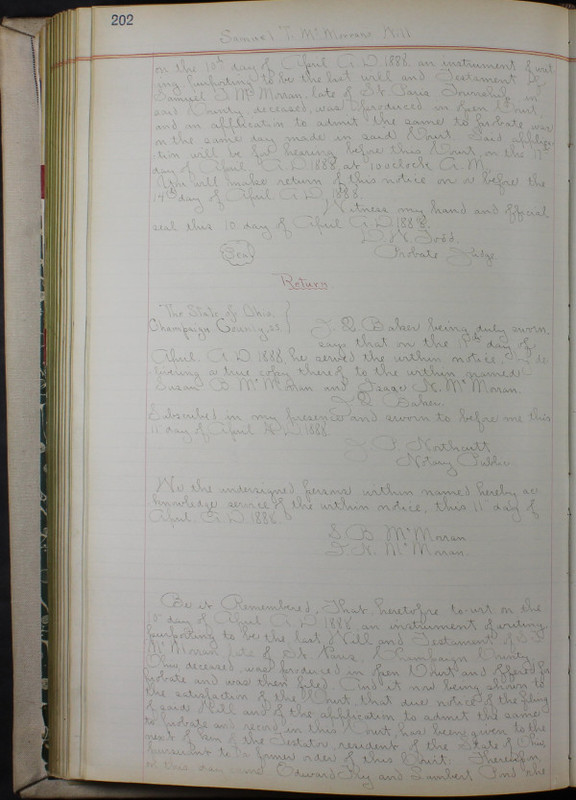 202
Samuel T. McMorans Will
on the 10th day of April A D 1888 an instrument of writ
ing purporting to be the last will and Testament of
Samuel T McMoran late of St Paris Township in
said County, deceased, was produced in open Court
and an application to admit the same to probate was
on the same day made in said Court. Said applica
tion will be for hearing before this Court on the 11th
day of April A D 1888, at 10 oclock A. M.
You will make return of this notice on or before the
14th day of April A D 1888
Witness my hand and official
seal this 10 day of April A D 1888.
Todd
Seal
Probate Judge
Return
The State of Ohio
Champaign County, ss
Baker being duly sworn
says that on the day of
April A D 1888 he served the within notice, by de
livering a true copy thereof to the within named
Susan B McMoran and Isaac N. McMoran.
Baker
Subscribed in my presence and sworn to before me this
11 day of April A. D 1888
Northcutt
Notary Public
We the undersigned persons within named hereby ac
knowledge service of the within notice, this 11 day of
April A D 1888
S B McMoran
I. N. McMoran.
Be it Remembered, That heretofore to-wit on the
10 day of April A D 1888 an instrument of writing
purporting to be the last Will and Testament of S T
McMoran late of St Paris, Champaign County
Ohio, deceased, was produced in open Court and offered for
probate and was then filed. And it now being shown to
the satisfaction of the Court, that due notice of the filing
of said Will and of the application to admit the same
to probate and record in this Court, has been given to the
next of kin of the Testator, resident of the State of Ohio
pursuant to a former order of this Court. Thereupon
on this day came Edward and Lambert Pond the